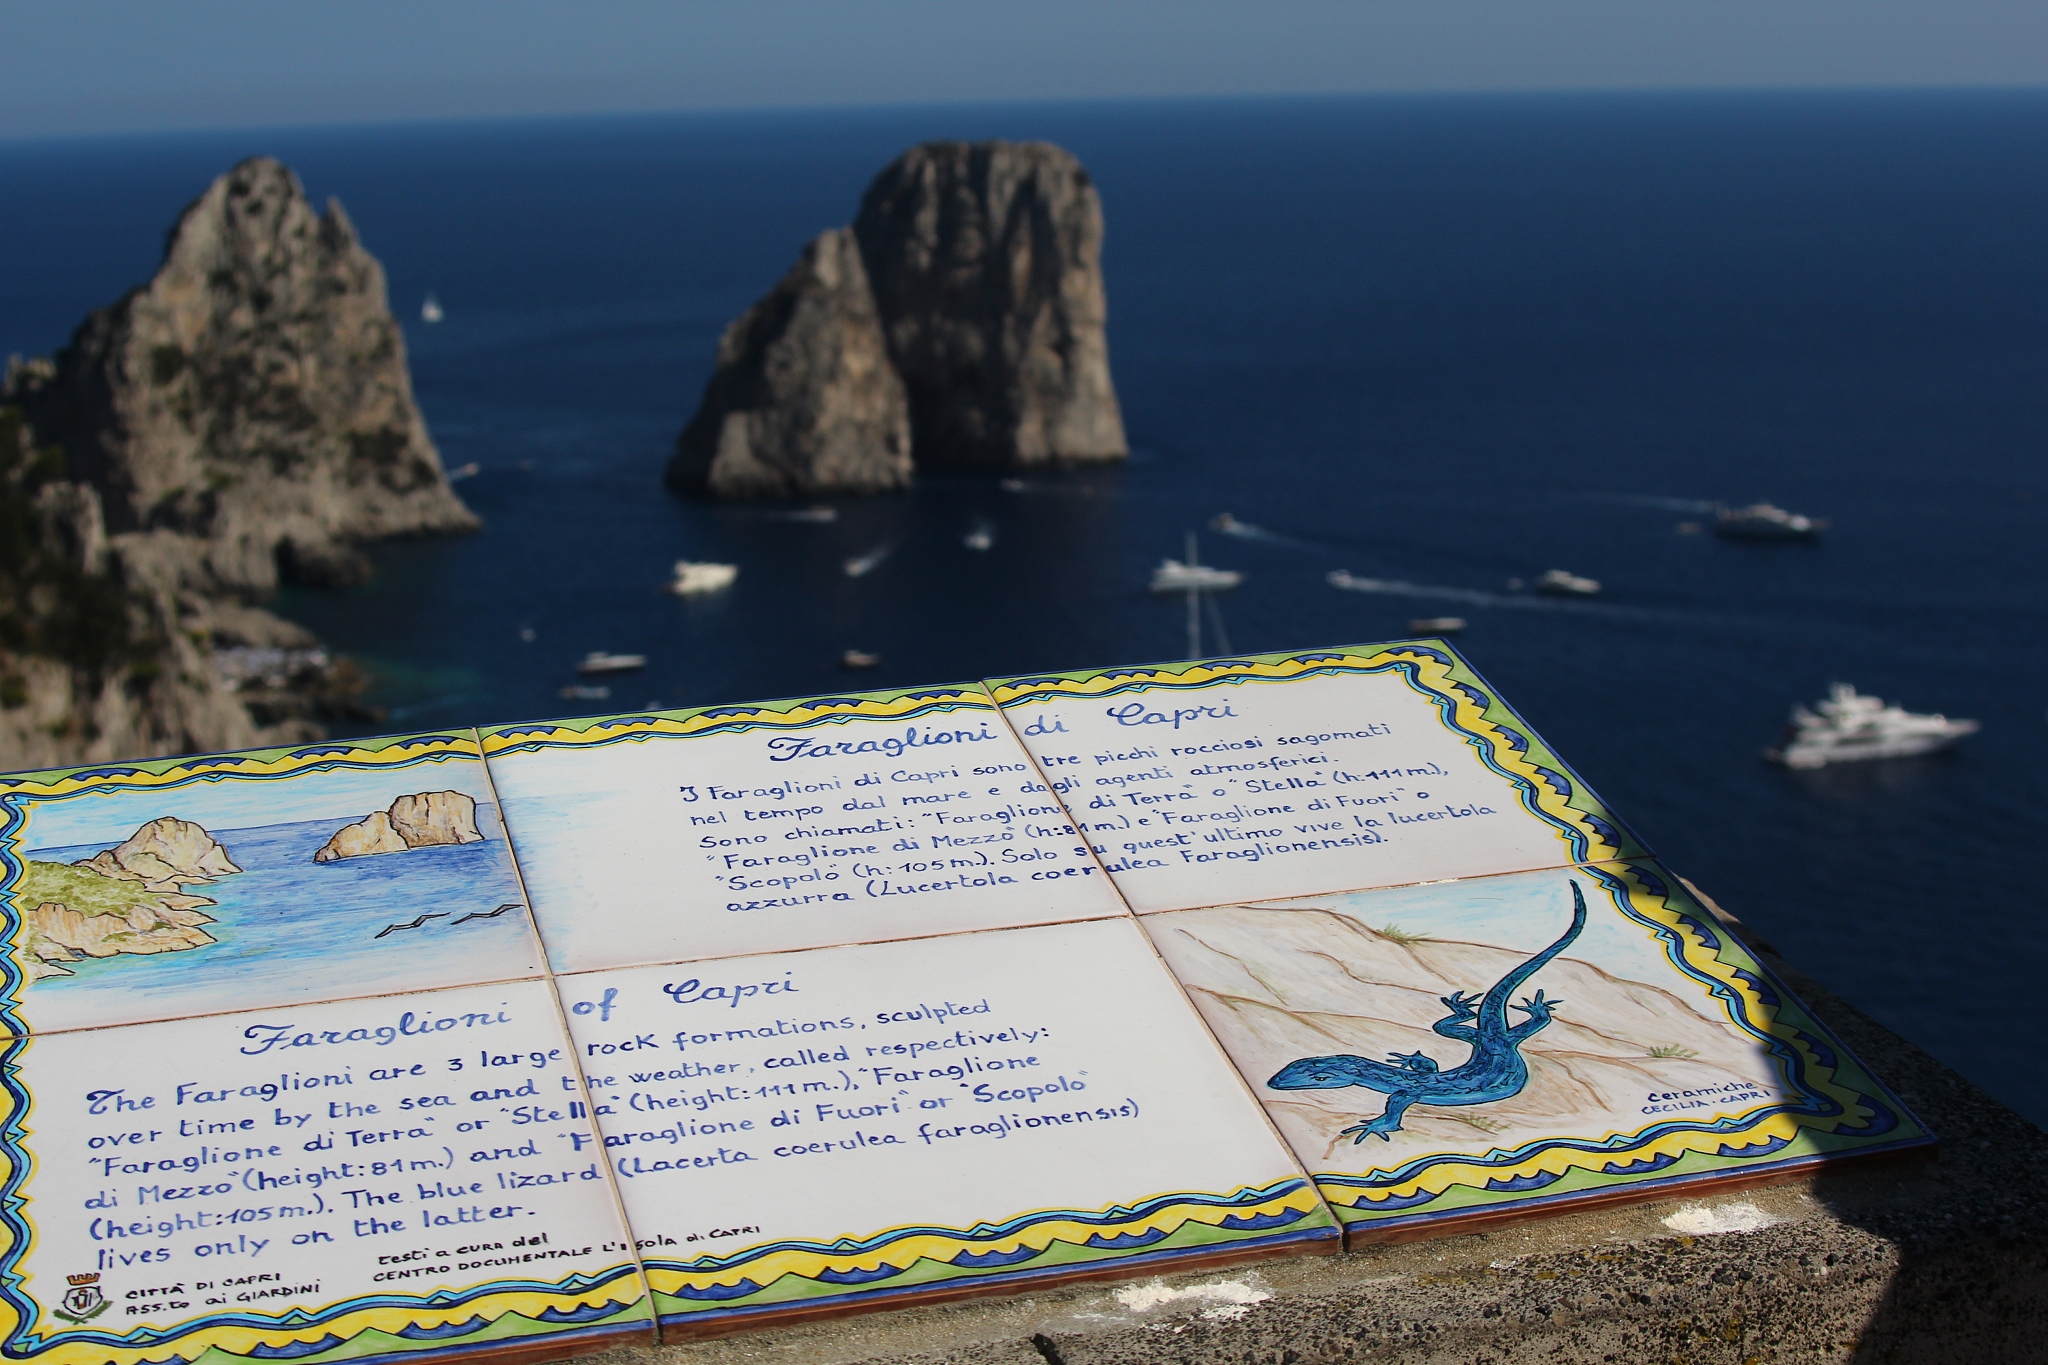 Faraglioni di Capri
I Faraglioni di Capri sono tre picchi rocciosi sagomati
nel tempo dal mare e dagli agenti atmosferici.
Sono chiamati: "Faraglione di Terra" o "Stella" (h:111m.),
"Faraglione di Mezzo" (h:81m.) e "Faraglione di Fuori" o
"Scopolo" (h:105m.). Solo su quest'ultimo vive la lucertola
azzurra (Lucertola coerulea Faraglionensis).
Faraglioni of Capri
The Faraglioni are 3 large rock formations, sculpted
over time by the sea and the weather, called respectively:
"Faraglione di Terra" or "Stella" (height:111m.), "Faraglione
di Mezzo" (height:81m.) and "Faraglione di Fuori" or "Scopolo"
(height:105m.). The blue lizard (Lacerta coerulea faraglionensis)
lives only on the latter.
CITTÀ DI CAPRI
ASS.to ai GIARDINI
testi a cura del
CENTRO DOCUMENTALE L'ISOLA di CAPRI
ceramiche
CECILIA · CAPRI